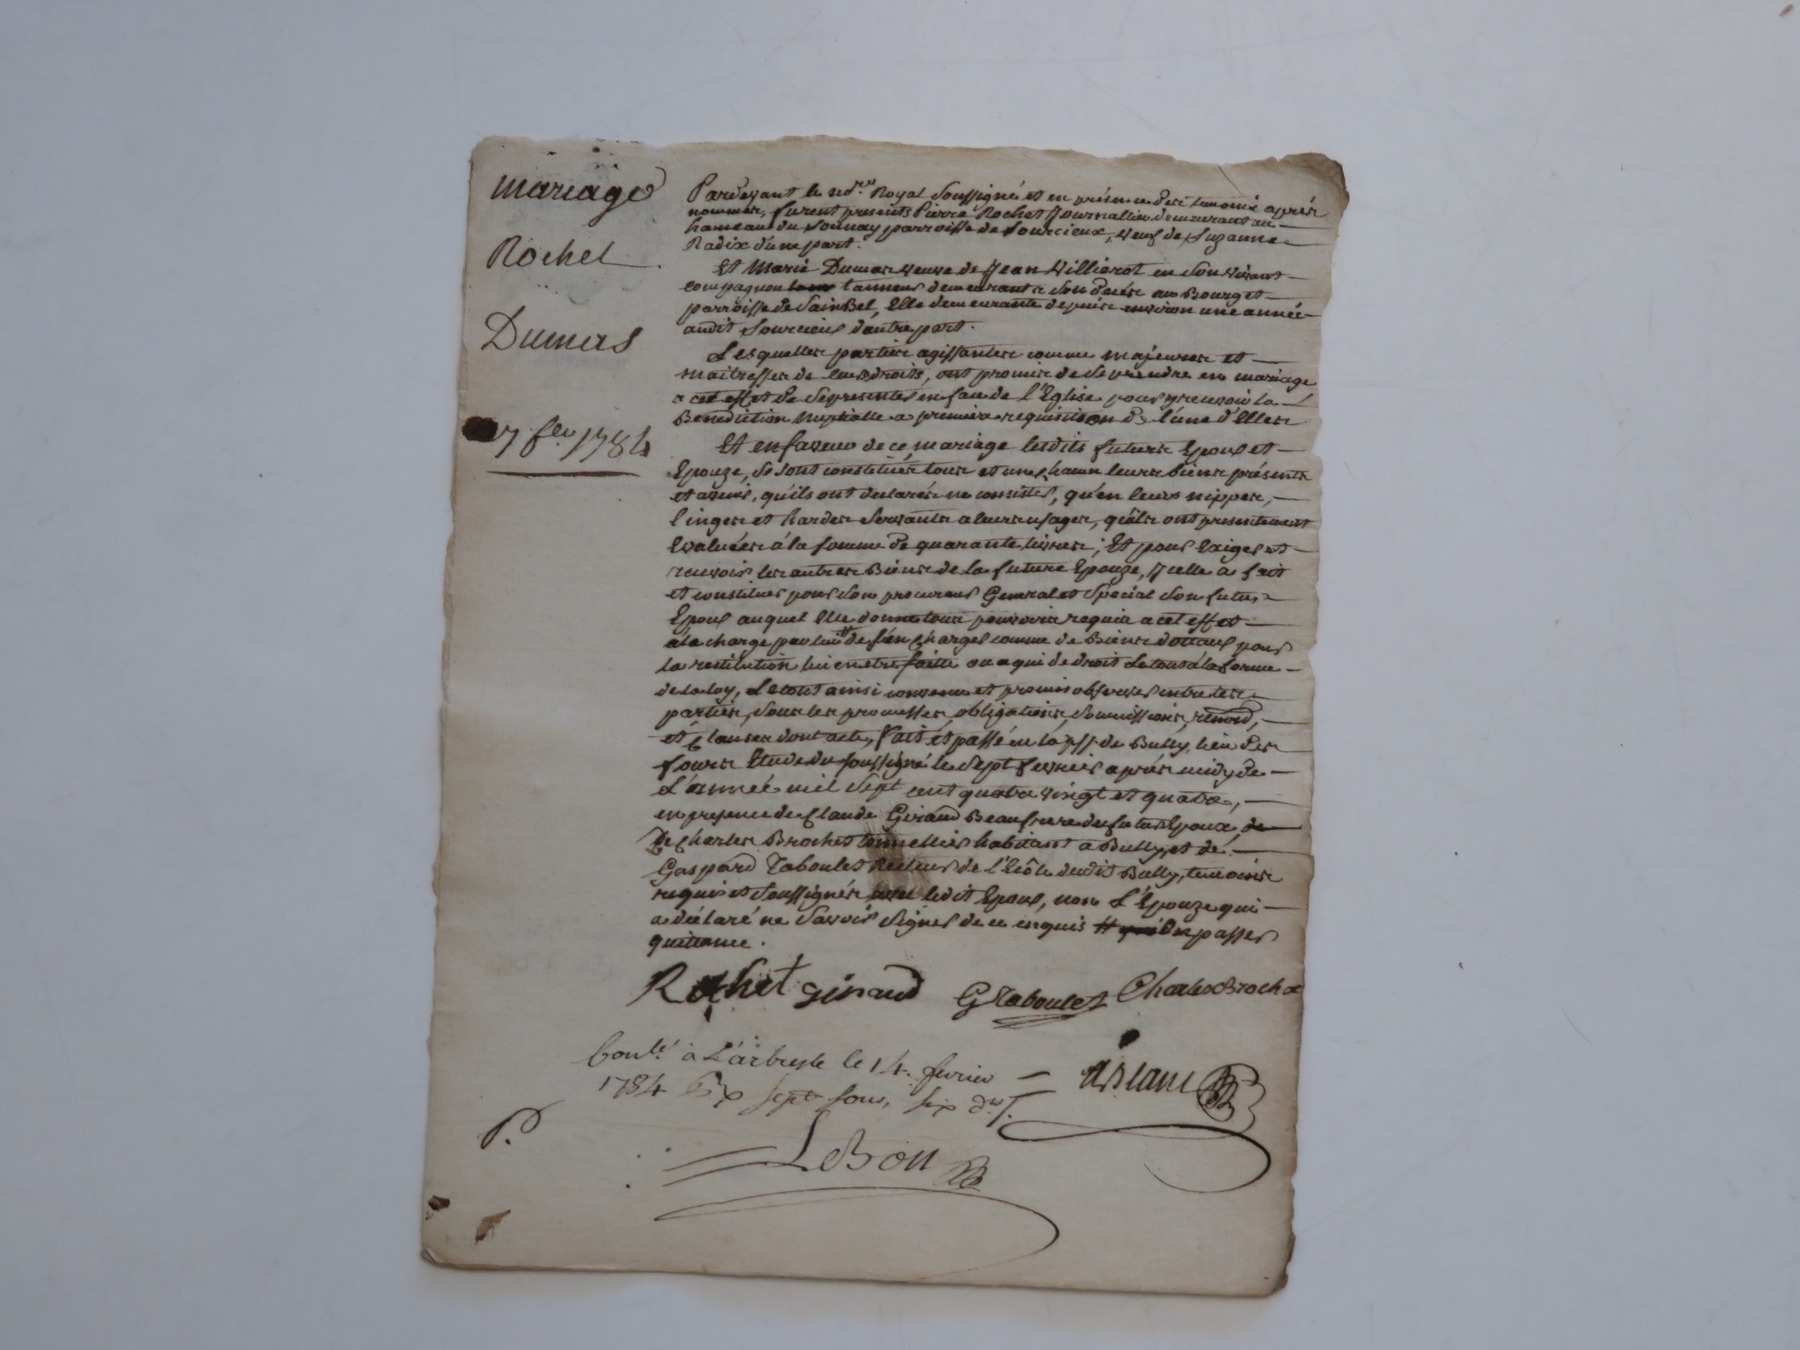 mariage
Rochet
Dumas
7 fev. 1784
Pardevant le no.re Royal soussigné et en présence des temoins après
nommés, furent presents Pierre Rochet Journallier demeurant au
hameau du Sounay parroisse de Sourcieux, veuf de Suzanne
Radix d'une part.
Et Marie Dumas veuve de Jean Villierot en son vivant
compagnon tanneur demeurant a son décès au Bourg et
parroisse de SainBel, Elle demeurante depuis environ une année
audit Sourcieux d'autre part.
Lesquelles parties agissantes comme majeures et
maitresses de leurs droits, ont promis de se prendre en mariage
a cet effet de se presenter en face de l'Eglise pour y recevoir la
Benediction Nuptialle a premiere requisition de l'une d'Elles
Et en faveur de ce mariage lesdits futurs Epoux et
Epouze, se sont constitués tous et un chacun leurs biens présents
et avenir, qu'ils ont declarés ne consister, qu'en leurs nippes,
linges et hardes servants a leurs usages, qu'ils ont presentement
Evaluées à la somme de quarante livres; Et pour Exiger et
recevoir les autres Biens de la future Epouze, Icelle a fait
et constitué pour son procureur General et Special son futur
Epoux auquel Elle donne tous pouvoirs requis a cet effet
a la charge par lui de s'en charger comme de Biens dottaux pour
la restitution lui en etre faitte ou a qui de droit Le tout à la forme
de la loy, Le tout ainsi convenu et promis observer entre les
parties, sous les promesses, obligations, soumissions, renond,
et clauses dont acte, fait et passé en la pss de Bully, lieu des
fours Etude du soussigné le sept fevrier après midy de
L'année mil sept cent quatre vingt et quatre,
en presence de Claude Giraud Beaufrere du futur Epoux,
De Charles Brochet tonnellier habitant a Bully, et de
Gaspard Taboulet Recteur de l'Ecôle dudit Bully, temoins
requis et soussignés avec ledit Epoux, non L'Epouze qui
a déclaré ne savoir signer de ce enquis passer
quittance.
Rochet giraud GTaboulet Charles Brochet
Conlé à L'arbresle le 14 fevrier
1784 sept sous, six d.rs
LeBon
P.